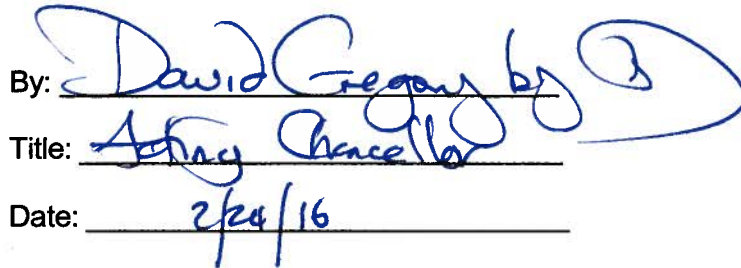 By: David Gregory by
Title: Acting Chancellor
Date: 2/24/16